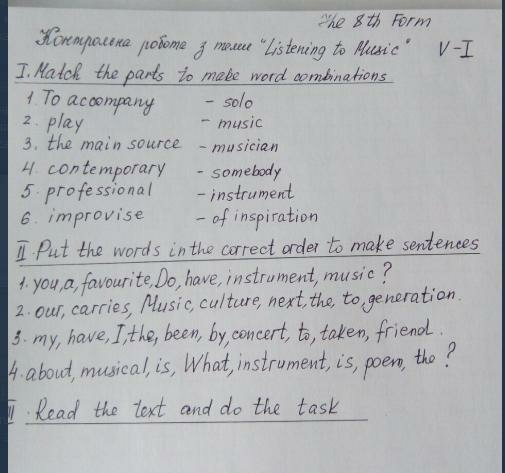 The 8th Form
Контрольна робота з теми "Listening to Music" V-I
I. Match the parts to make word combinations
1. To accompany - solo
2. play - music
3. the main source - musician
4. contemporary - somebody
5. professional - instrument
6. improvise - of inspiration
II. Put the words in the correct order to make sentences
1. you, a, favourite, Do, have, instrument, music?
2. our, carries, Music, culture, next, the, to, generation.
3. my, have, I, the, been, by, concert, to, taken, friend.
4. about, musical, is, What, instrument, is, poem, the?
III. Read the text and do the task